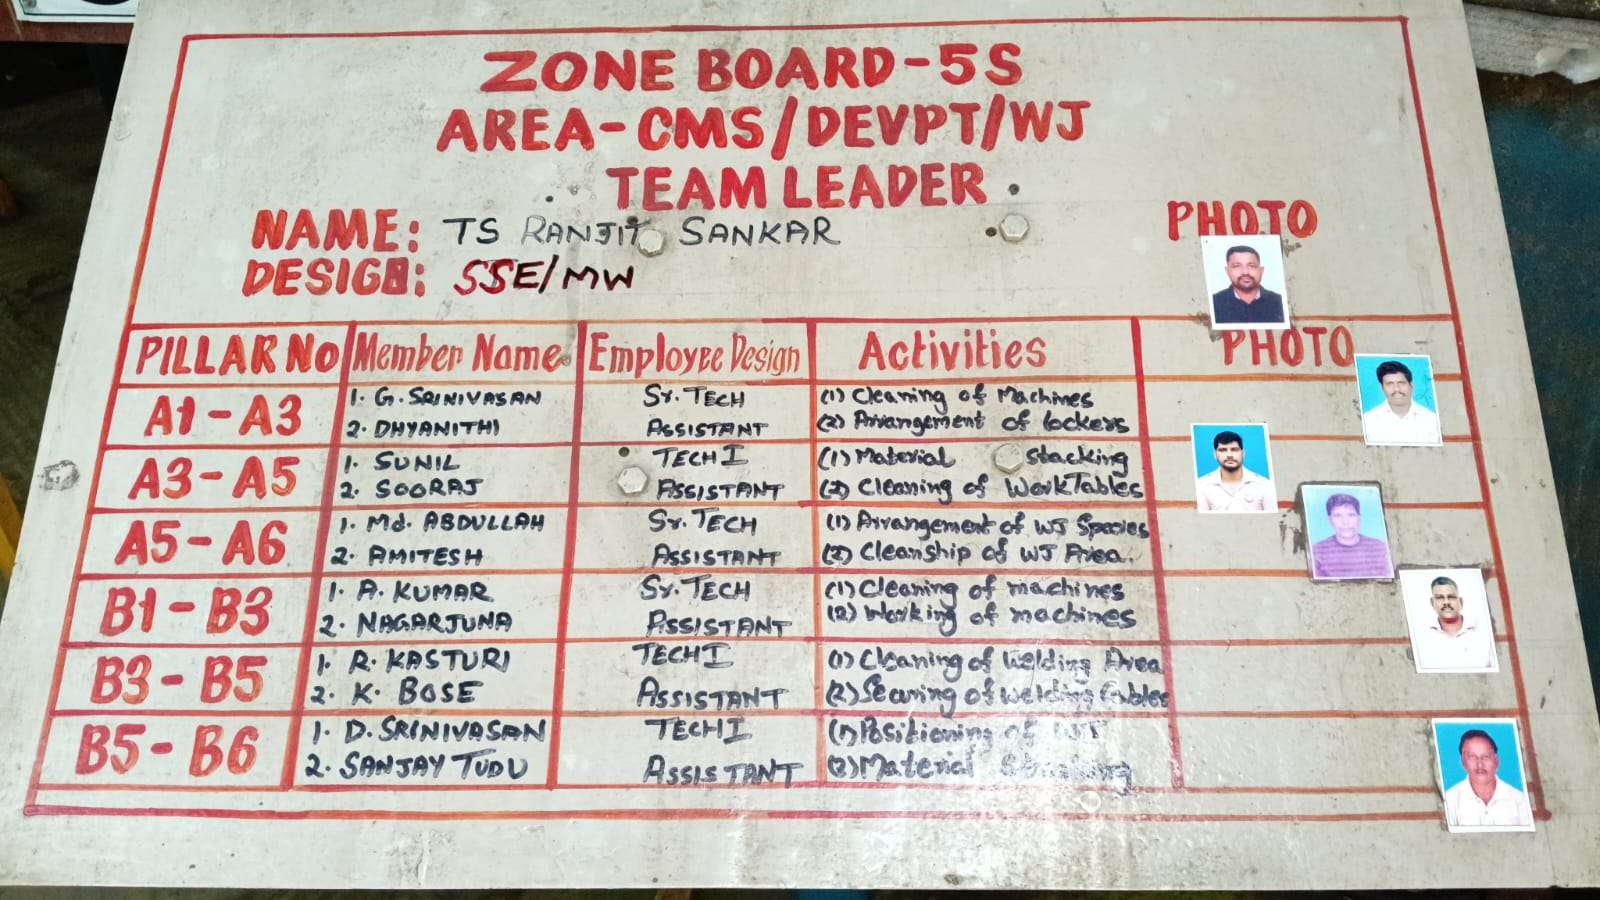 ZONE BOARD-5S
AREA-CMS/DEVPT/WJ
TEAM LEADER
NAME: TS RANJIT SANKAR
PHOTO
DESIGN: SSE/MW
PILLAR No Member Name Employee Design Activities PHOTO
A1-A3 1. G. SRINIVASAN Sr. TECH (1) Cleaning of Machines
2. DHYANITHI ASSISTANT (2) Arrangement of lockers
A3-A5 1. SUNIL TECH I (1) Material stacking
2. SOORAJ ASSISTANT (2) Cleaning of Work Tables
A5-A6 1. Md. ABDULLAH Sr. TECH (1) Arrangement of WJ Species
2. AMITESH ASSISTANT (2) Cleanship of WJ Area.
B1-B3 1. A. KUMAR Sr. TECH (1) Cleaning of machines
2. NAGARJUNA ASSISTANT (2) Working of machines
B3-B5 1. R. KASTURI TECH I (1) Cleaning of welding Area
2. K. BOSE ASSISTANT (2) Securing of welding Cables
B5-B6 1. D. SRINIVASAN TECH I (1) Positioning of
2. SANJAY TUDU ASSISTANT (2) Material